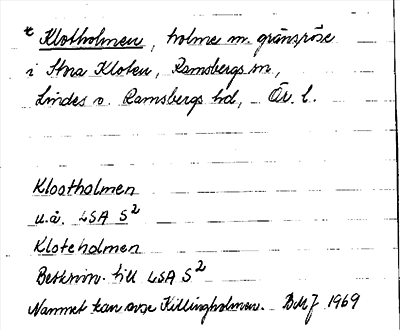 * Klotholmen, holme m. gränsröse
i Stora Kloten, Ramsbergs sn,
Lindes o. Ramsbergs hd, Ör. l.
Kloatholmen
u.å. LSA S2
Kloteholmen
Beskrivn. till LSA S2
Namnet kan avse Killingholmen. 1969